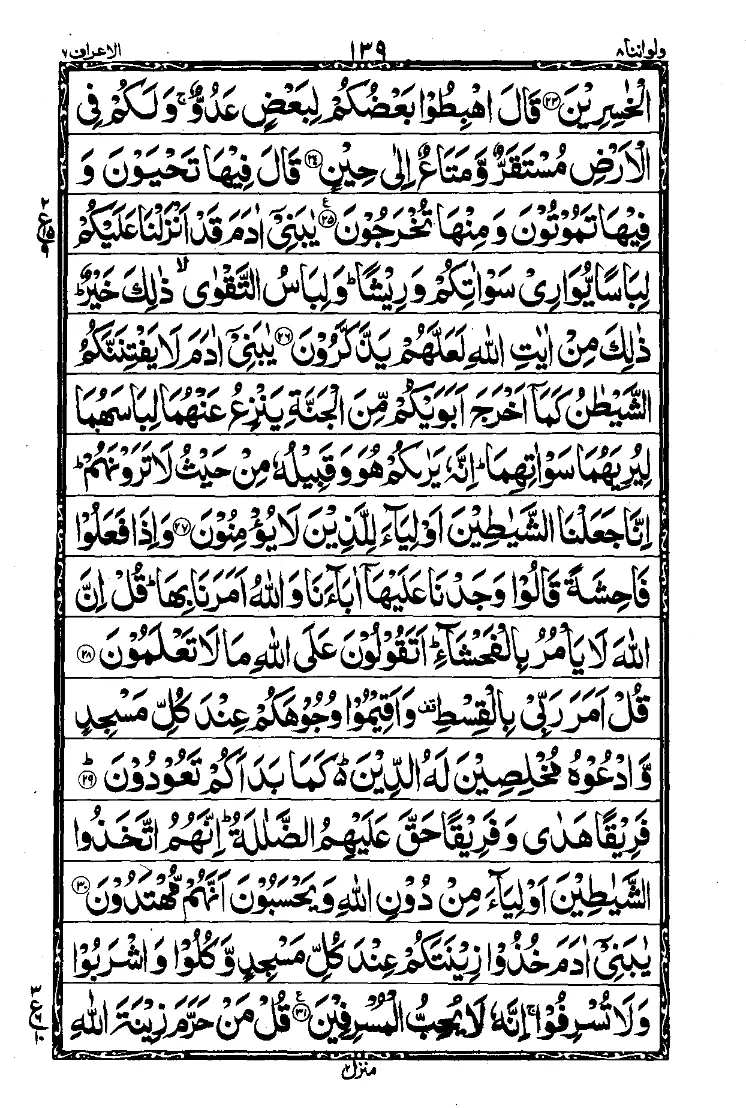 ولواننا ۸ ۱۳۹ الاعراف ۷
الْخٰسِرِیْنَ ﴿۲۳﴾ قَالَ اهْبِطُوْا بَعْضُكُمْ لِبَعْضٍ عَدُوٌّ ۚ وَ لَكُمْ فِی
الْاَرْضِ مُسْتَقَرٌّ وَّ مَتَاعٌ اِلٰی حِیْنٍ ﴿۲۴﴾ قَالَ فِیْهَا تَحْیَوْنَ وَ
فِیْهَا تَمُوْتُوْنَ وَ مِنْهَا تُخْرَجُوْنَ ﴿۲۵﴾ یٰبَنِیْۤ اٰدَمَ قَدْ اَنْزَلْنَا عَلَیْكُمْ
لِبَاسًا یُّوَارِیْ سَوْاٰتِكُمْ وَ رِیْشًا ؕ وَ لِبَاسُ التَّقْوٰی ۙ ذٰلِكَ خَیْرٌ ؕ
ذٰلِكَ مِنْ اٰیٰتِ اللّٰهِ لَعَلَّهُمْ یَذَّكَّرُوْنَ ﴿۲۶﴾ یٰبَنِیْۤ اٰدَمَ لَا یَفْتِنَنَّكُمُ
الشَّیْطٰنُ كَمَاۤ اَخْرَجَ اَبَوَیْكُمْ مِّنَ الْجَنَّةِ یَنْزِعُ عَنْهُمَا لِبَاسَهُمَا
لِیُرِیَهُمَا سَوْاٰتِهِمَا ؕ اِنَّهٗ یَرٰىكُمْ هُوَ وَ قَبِیْلُهٗ مِنْ حَیْثُ لَا تَرَوْنَهُمْ ؕ
اِنَّا جَعَلْنَا الشَّیٰطِیْنَ اَوْلِیَآءَ لِلَّذِیْنَ لَا یُؤْمِنُوْنَ ﴿۲۷﴾ وَ اِذَا فَعَلُوْا
فَاحِشَةً قَالُوْا وَجَدْنَا عَلَیْهَاۤ اٰبَآءَنَا وَ اللّٰهُ اَمَرَنَا بِهَا ؕ قُلْ اِنَّ
اللّٰهَ لَا یَاْمُرُ بِالْفَحْشَآءِ ؕ اَتَقُوْلُوْنَ عَلَی اللّٰهِ مَا لَا تَعْلَمُوْنَ ﴿۲۸﴾
قُلْ اَمَرَ رَبِّیْ بِالْقِسْطِ ۫ وَ اَقِیْمُوْا وُجُوْهَكُمْ عِنْدَ كُلِّ مَسْجِدٍ
وَّ ادْعُوْهُ مُخْلِصِیْنَ لَهُ الدِّیْنَ ؕ۬ كَمَا بَدَاَكُمْ تَعُوْدُوْنَ ﴿ؕ۲۹﴾
فَرِیْقًا هَدٰی وَ فَرِیْقًا حَقَّ عَلَیْهِمُ الضَّلٰلَةُ ؕ اِنَّهُمُ اتَّخَذُوا
الشَّیٰطِیْنَ اَوْلِیَآءَ مِنْ دُوْنِ اللّٰهِ وَ یَحْسَبُوْنَ اَنَّهُمْ مُّهْتَدُوْنَ ﴿۳۰﴾
یٰبَنِیْۤ اٰدَمَ خُذُوْا زِیْنَتَكُمْ عِنْدَ كُلِّ مَسْجِدٍ وَّ كُلُوْا وَ اشْرَبُوْا
وَ لَا تُسْرِفُوْا ۚ اِنَّهٗ لَا یُحِبُّ الْمُسْرِفِیْنَ ﴿۳۱﴾ قُلْ مَنْ حَرَّمَ زِیْنَةَ اللّٰهِ
منزل ۲